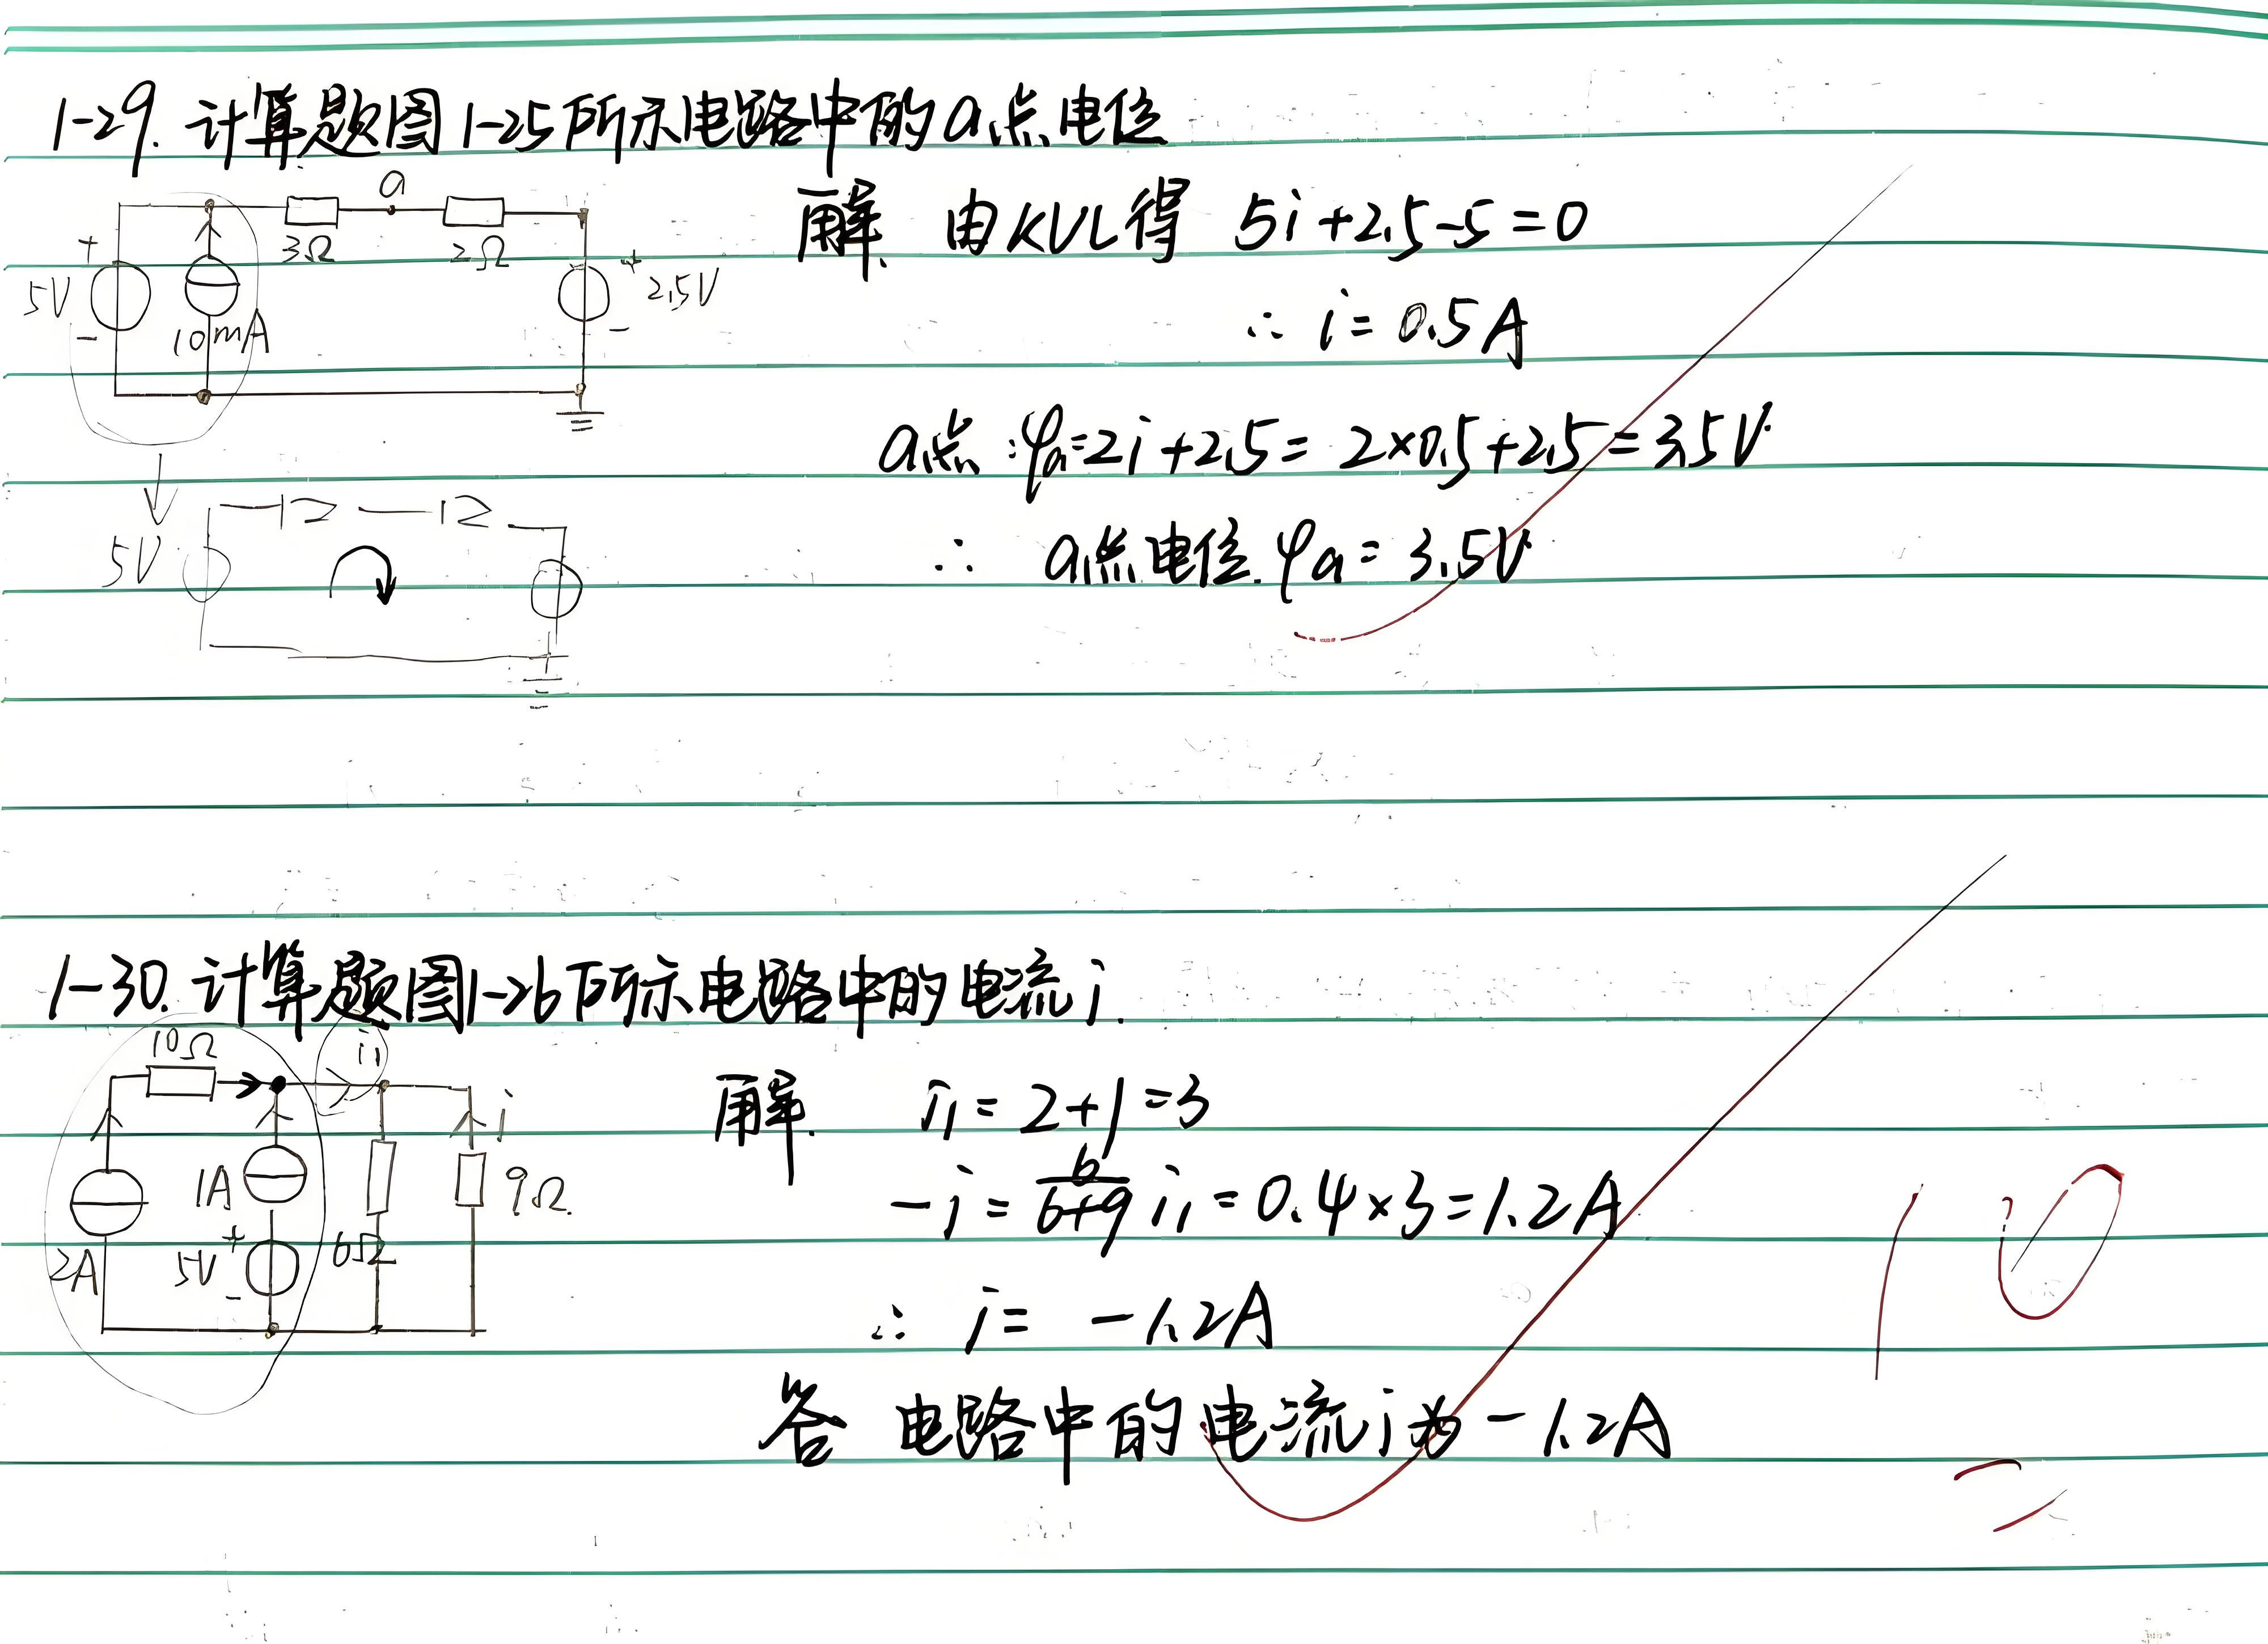 1-29. 计算题图1-25所示电路中的a点电位
a
3Ω 2Ω
+ 5V -
10mA
+ 2.5V -
5V
解. 由KVL得 5i+2.5-5=0
∴ i=0.5A
a点:φa=2i+2.5=2×0.5+2.5=3.5V.
∴ a点电位.φa=3.5V
1-30. 计算题图1-26所示电路中的电流i.
10Ω i1
i
1A 9Ω
2A 5V + - 6Ω
解. i1=2+1=3
-i=6/(6+9) i1=0.4×3=1.2A
∴ i=-1.2A
答 电路中的电流i为-1.2A
10